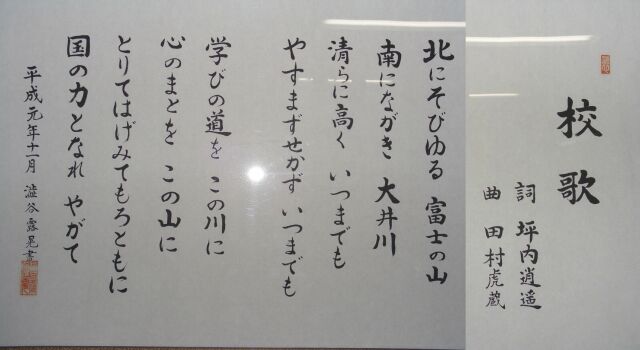 校歌
詞 坪内逍遥
曲 田村虎蔵
北にそびゆる 富士の山
南にながき 大井川
清らに高く いつまでも
やすまずせかず いつまでも
学びの道を この川に
心のまとを この山に
とりてはげみてもろともに
国の力となれ やがて
平成元年十一月 澁谷露晃書